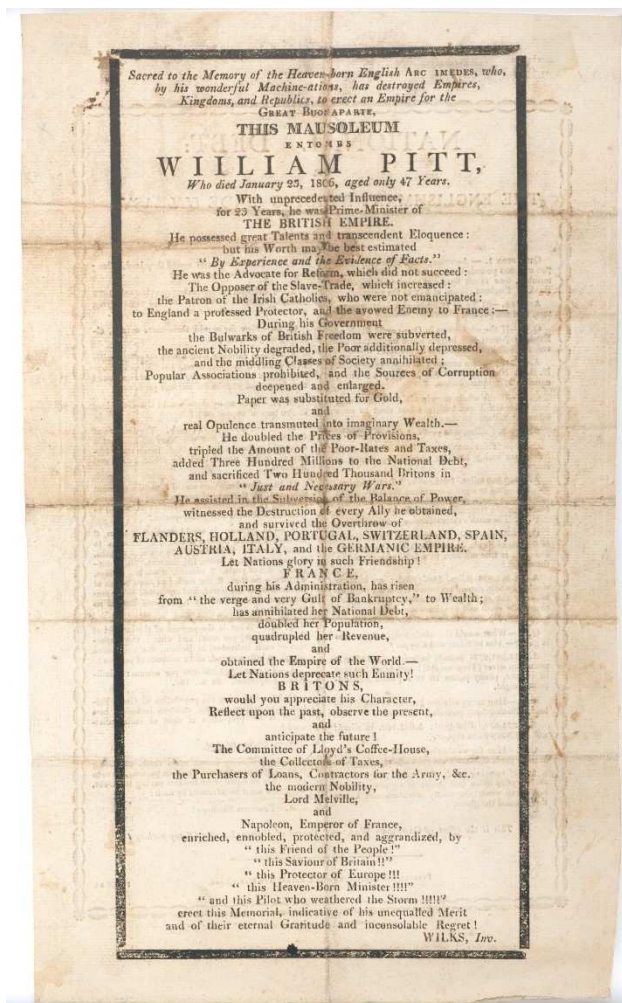 Sacred to the Memory of the Heaven-born English ARC IMEDES, who,
by his wonderful Machine-ations, has destroyed Empires,
Kingdoms, and Republics, to erect an Empire for the
GREAT BUONAPARTE,
THIS MAUSOLEUM
ENTOMBS
WILLIAM PITT,
Who died January 23, 1806, aged only 47 Years.
With unprecedented Influence,
for 23 Years, he was Prime-Minister of
THE BRITISH EMPIRE.
He possessed great Talents and transcendent Eloquence :
but his Worth may be best estimated
“ By Experience and the Evidence of Facts.”
He was the Advocate for Reform, which did not succeed :
The Opposer of the Slave-Trade, which increased :
the Patron of the Irish Catholics, who were not emancipated :
to England a professed Protector, and the avowed Enemy to France :—
During his Government
the Bulwarks of British Freedom were subverted,
the ancient Nobility degraded, the Poor additionally depressed,
and the middling Classes of Society annihilated ;
Popular Associations prohibited, and the Sources of Corruption
deepened and enlarged.
Paper was substituted for Gold,
and
real Opulence transmuted into imaginary Wealth.—
He doubled the Prices of Provisions,
tripled the Amount of the Poor-Rates and Taxes,
added Three Hundred Millions to the National Debt,
and sacrificed Two Hundred Thousand Britons in
“ Just and Necessary Wars.”
He assisted in the Subversion of the Balance of Power,
witnessed the Destruction of every Ally he obtained,
and survived the Overthrow of
FLANDERS, HOLLAND, PORTUGAL, SWITZERLAND, SPAIN,
AUSTRIA, ITALY, and the GERMANIC EMPIRE.
Let Nations glory in such Friendship !
FRANCE,
during his Administration, has risen
from “ the verge and very Gulf of Bankruptcy,” to Wealth ;
has annihilated her National Debt,
doubled her Population,
quadrupled her Revenue,
and
obtained the Empire of the World.—
Let Nations deprecate such Enmity!
BRITONS,
would you appreciate his Character,
Reflect upon the past, observe the present,
and
anticipate the future !
The Committee of Lloyd's Coffee-House,
the Collectors of Taxes,
the Purchasers of Loans, Contractors for the Army, &c.
the modern Nobility,
Lord Melville,
and
Napoleon, Emperor of France,
enriched, ennobled, protected, and aggrandized, by
“ this Friend of the People !”
“ this Saviour of Britain !!”
“ this Protector of Europe !!!
“ this Heaven-Born Minister !!!!”
“ and this Pilot who weathered the Storm !!!!!”
erect this Memorial, indicative of his unequalled Merit
and of their eternal Gratitude and inconsolable Regret !
WILKS, Inv.